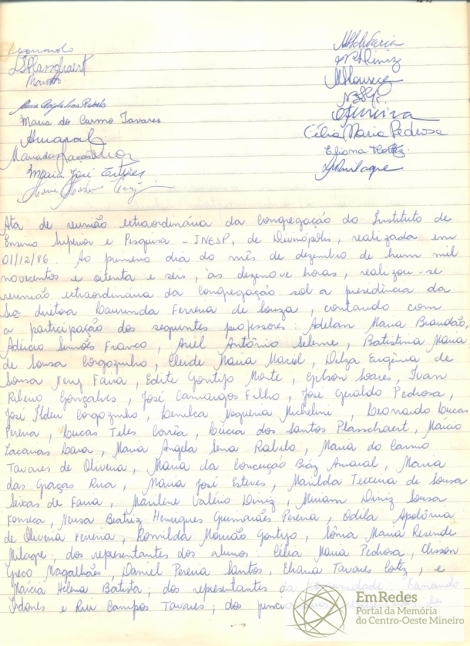 Leonardo
LSPlasschaert
Maria do Carmo Tavares
Amaral
Maria José Esteves
MVDiniz
Célia Maria Pedrosa
Eliana T Cotz
Ata de reunião extraordinária da Congregação do Instituto de
Ensino Superior e Pesquisa - INESP, de Divinópolis, realizada em
01/12/86. Ao primeiro dia do mês de dezembro de hum mil
novecentos e oitenta e seis, às dezenove horas, realizou-se
reunião extraordinária da congregação sob a presidência da
diretora Laurinda Ferreira de Souza, contando com
a participação dos seguintes professores: Adelan Maria Brandão,
Adício Simões Franco, Ariel Antônio Seleme, Batistina Maria
de Sousa Corgozinho, Cleide Maria Maciel, Dilza Eugênia de
Sousa Faria, Edite Gontijo Monte, Gylson Soares, Ivan
Ribeiro Gonçalves, José Camargos Filho, José Geraldo Pedrosa,
José Ilden Corgozinho, Nogueira Michelini, Leonardo Lucas
Pereira, Lucas Teles Corrêa, Lúcia dos Santos Plasschaert, Marco
Lacavas Lara, Maria Ângela Lima Rabelo, Maria do Carmo
Tavares de Oliveira, Maria da Conceição Amaral, Maria
das Graças Rua, Maria José Esteves, Marilda Teixeira de Sousa
Seixas de Faria, Marilene Valério Diniz, Miriam Diniz Sousa
Fonseca, Neusa Beatriz Henriques Guimarães Pereira, Odila Apolônia
de Oliveira Ferreira, Romilda Mourão Gontijo, Sônia Maria Resende
Milagre, dos representantes dos alunos: Célia Maria Pedrosa, Cleison
Greco Magalhães, Daniel Pereira Santos, Eliana Tavares Cotz, e
Márcia Helena Batista; dos representantes da comunidade
e Ruy Campos Tavares; dos
EmRedes
Portal da Memória
do Centro-Oeste Mineiro